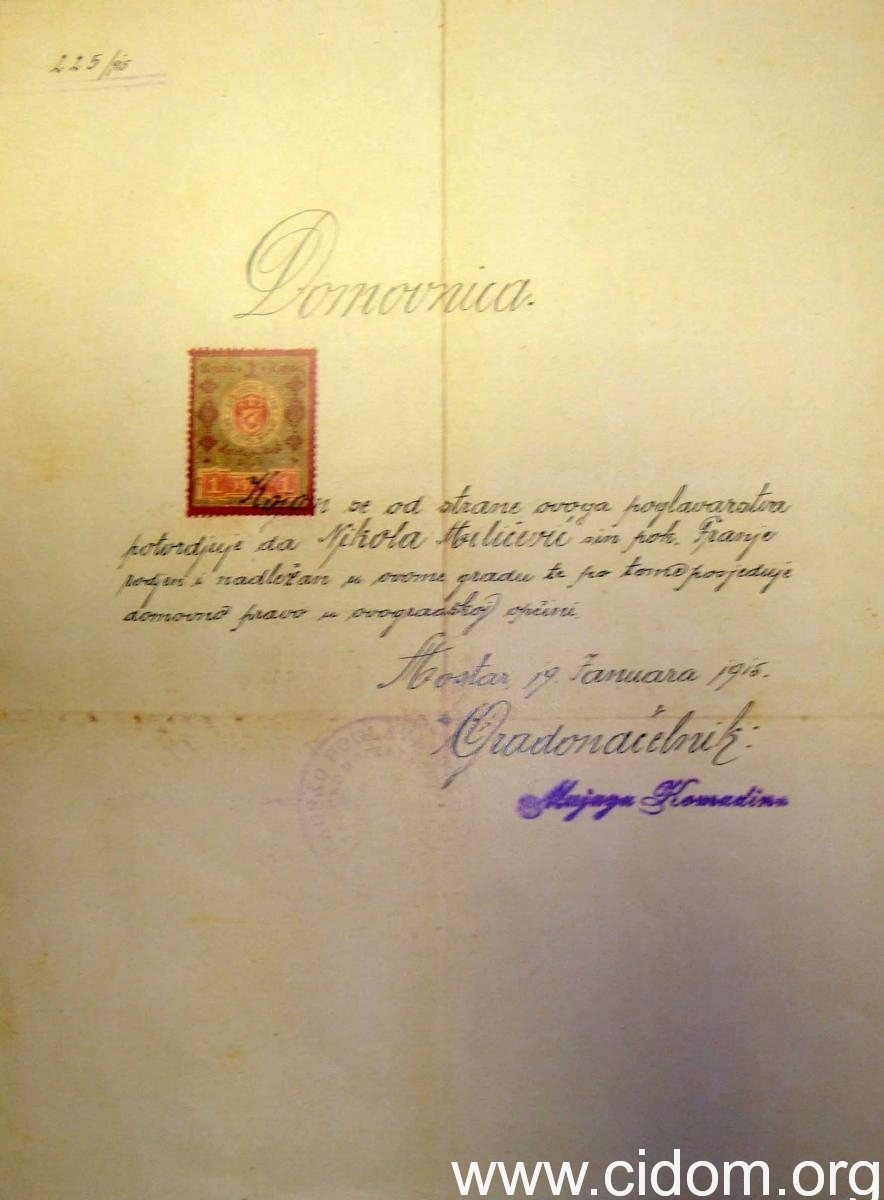 225/915
Domovnica.
1 1
Kojom se od strane ovoga poglavarstva
potvrdjuje da Nikola Milićević sin pok. Franje
rodjen i nadležan u ovome gradu te po tome posjeduje
domovno pravo u ovogradskoj općini.
Mostar, 19. Januara 1915.
Gradonačelnik:
Mujaga Komadina
www.cidom.org